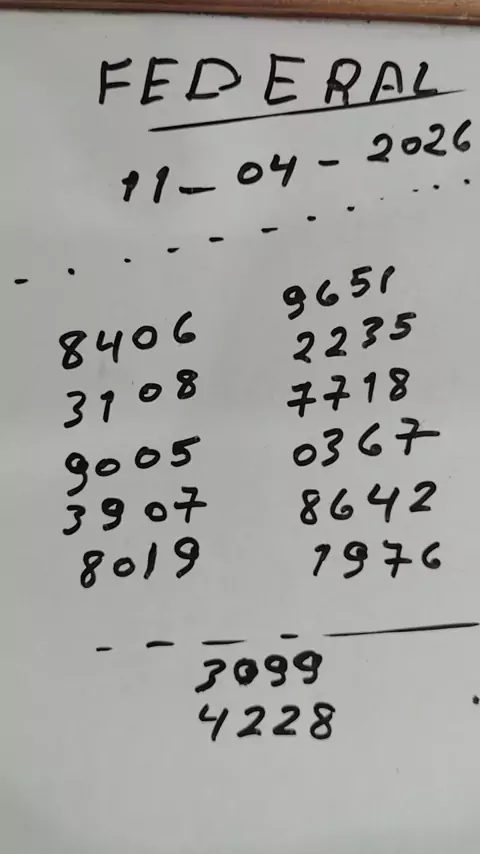 FEDERAL
11-04-2026
9651
8406 2235
3108 7718
9005 0367
3907 8642
8019 1976
3099
4228